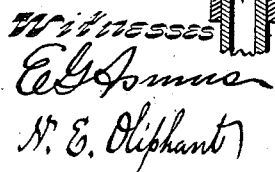 Witnesses
E. G. Asmus
N. E. Oliphant